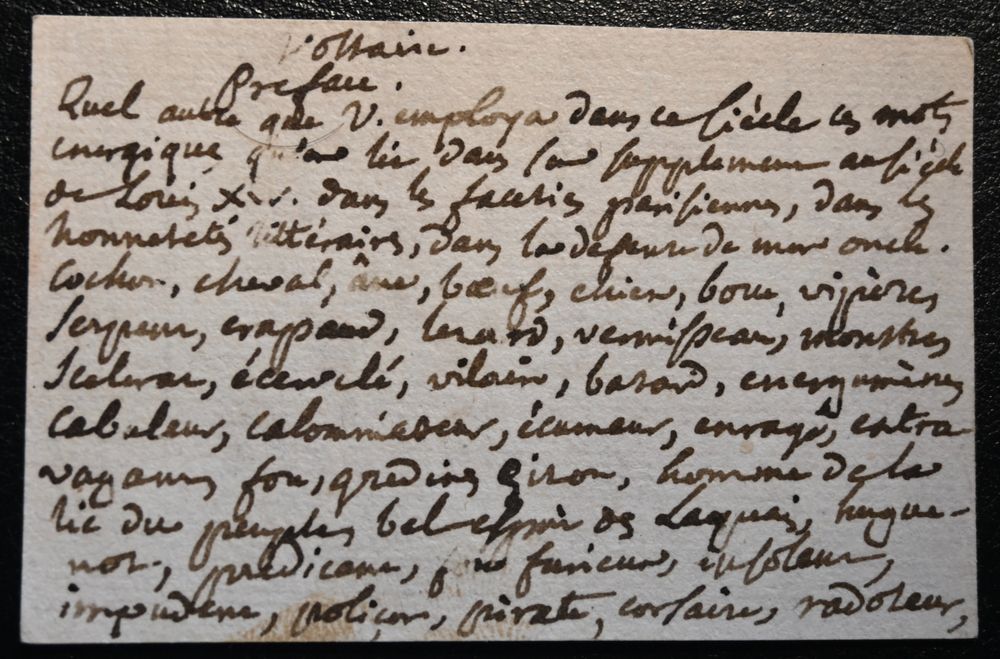 Voltaire.
Preface.
Quel autre que V. employa dans ce siécle ces mots
energiques qu'on lit dans son supplement au siécle
de Louis XIV. dans les faceties parisiennes, dans les
honnetetés littéraires, dans la defense de mon oncle.
Cochon, cheval, âne, bœuf, chien, bouc, vipères
Serpent, crapaud, lezard, vermisseau, monstres
Scelerat, écervelé, vilain, batard, energumènes
Cabaleur, calomniateur, écumeur, enragé, extra-
vagant fou, gredins, giton, homme de la
lie du peuple, bel esprit des Laquais, hugue-
not, predicant, fou furieux, insolent,
impudent, poliçon, pirate, corsaire, radoteur,